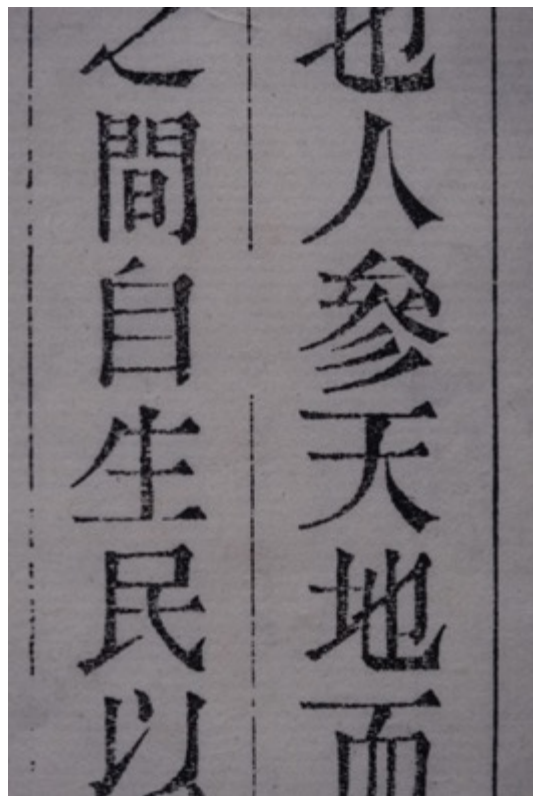 也人參天地而
之間自生民以